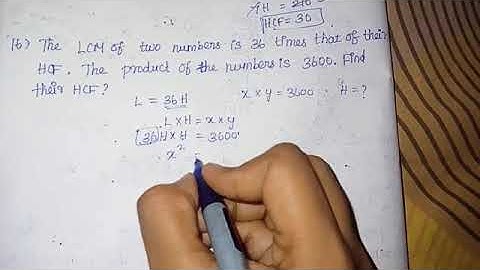 AH = 210
HCF = 30
16) The LCM of two numbers is 36 times that of their
HCF. The product of the numbers is 3600. Find
their HCF?
L = 36H x × y = 3600 H = ?
L × H = x × y
(36)H × H = 3600
x² =